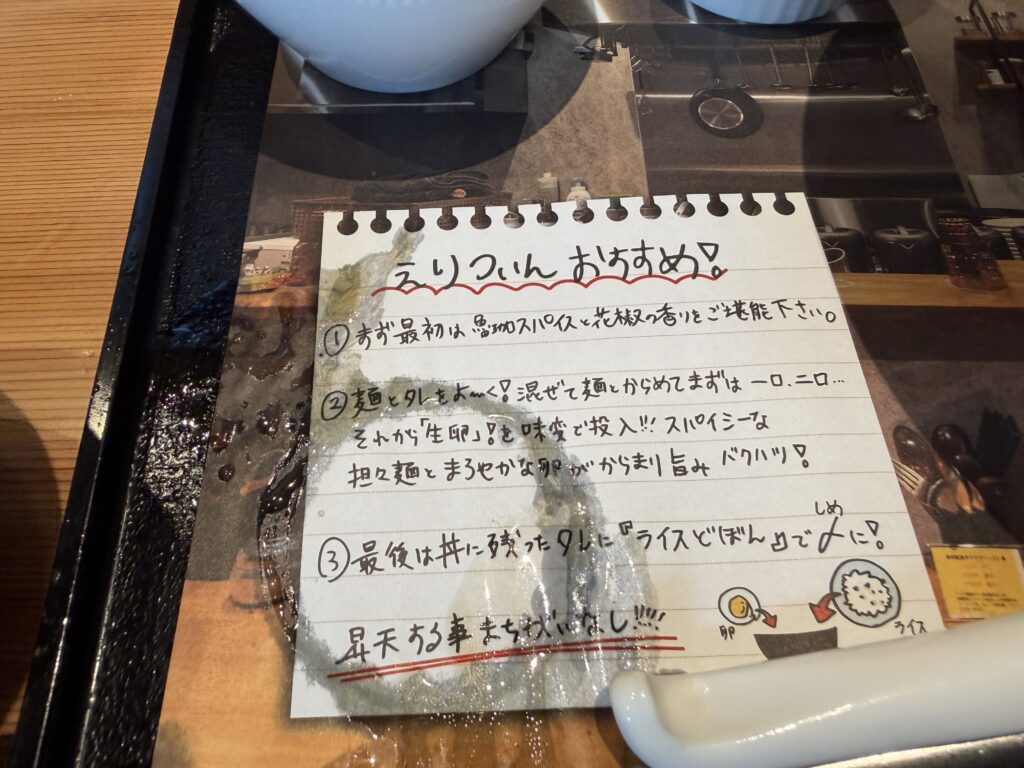 えりつぃん おすすめ!
① まず最初は 魯珈スパイスと花椒の香りをご堪能下さい。
② 麺とタレをよ〜く!混ぜて麺とからめてまずは 一口、二口…
それから「生卵」!を味変で投入!!! スパイシーな
担々麺と まろやかな卵がからまり旨み バクハツ!
しめ
③ 最後は丼に残ったタレに『ライスどぼん』で〆に!
卵
ライス
昇天する事まちがいなし!!!!